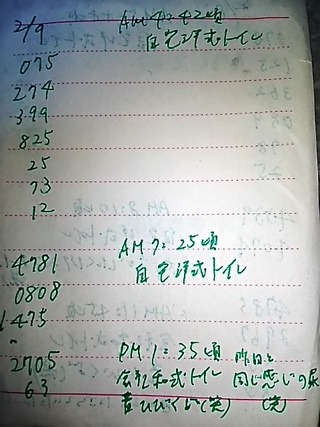 2/9 AM 4:42頃
自宅洋式トイレ
075
274
399
825
25
73
12
AM 7:25頃
4781 自宅洋式トイレ
0808
1475
〃
2705 PM 1:35頃 昨日と
63 会社和式トイレ 同じ感じの尿
音ひびくい(笑) (笑)